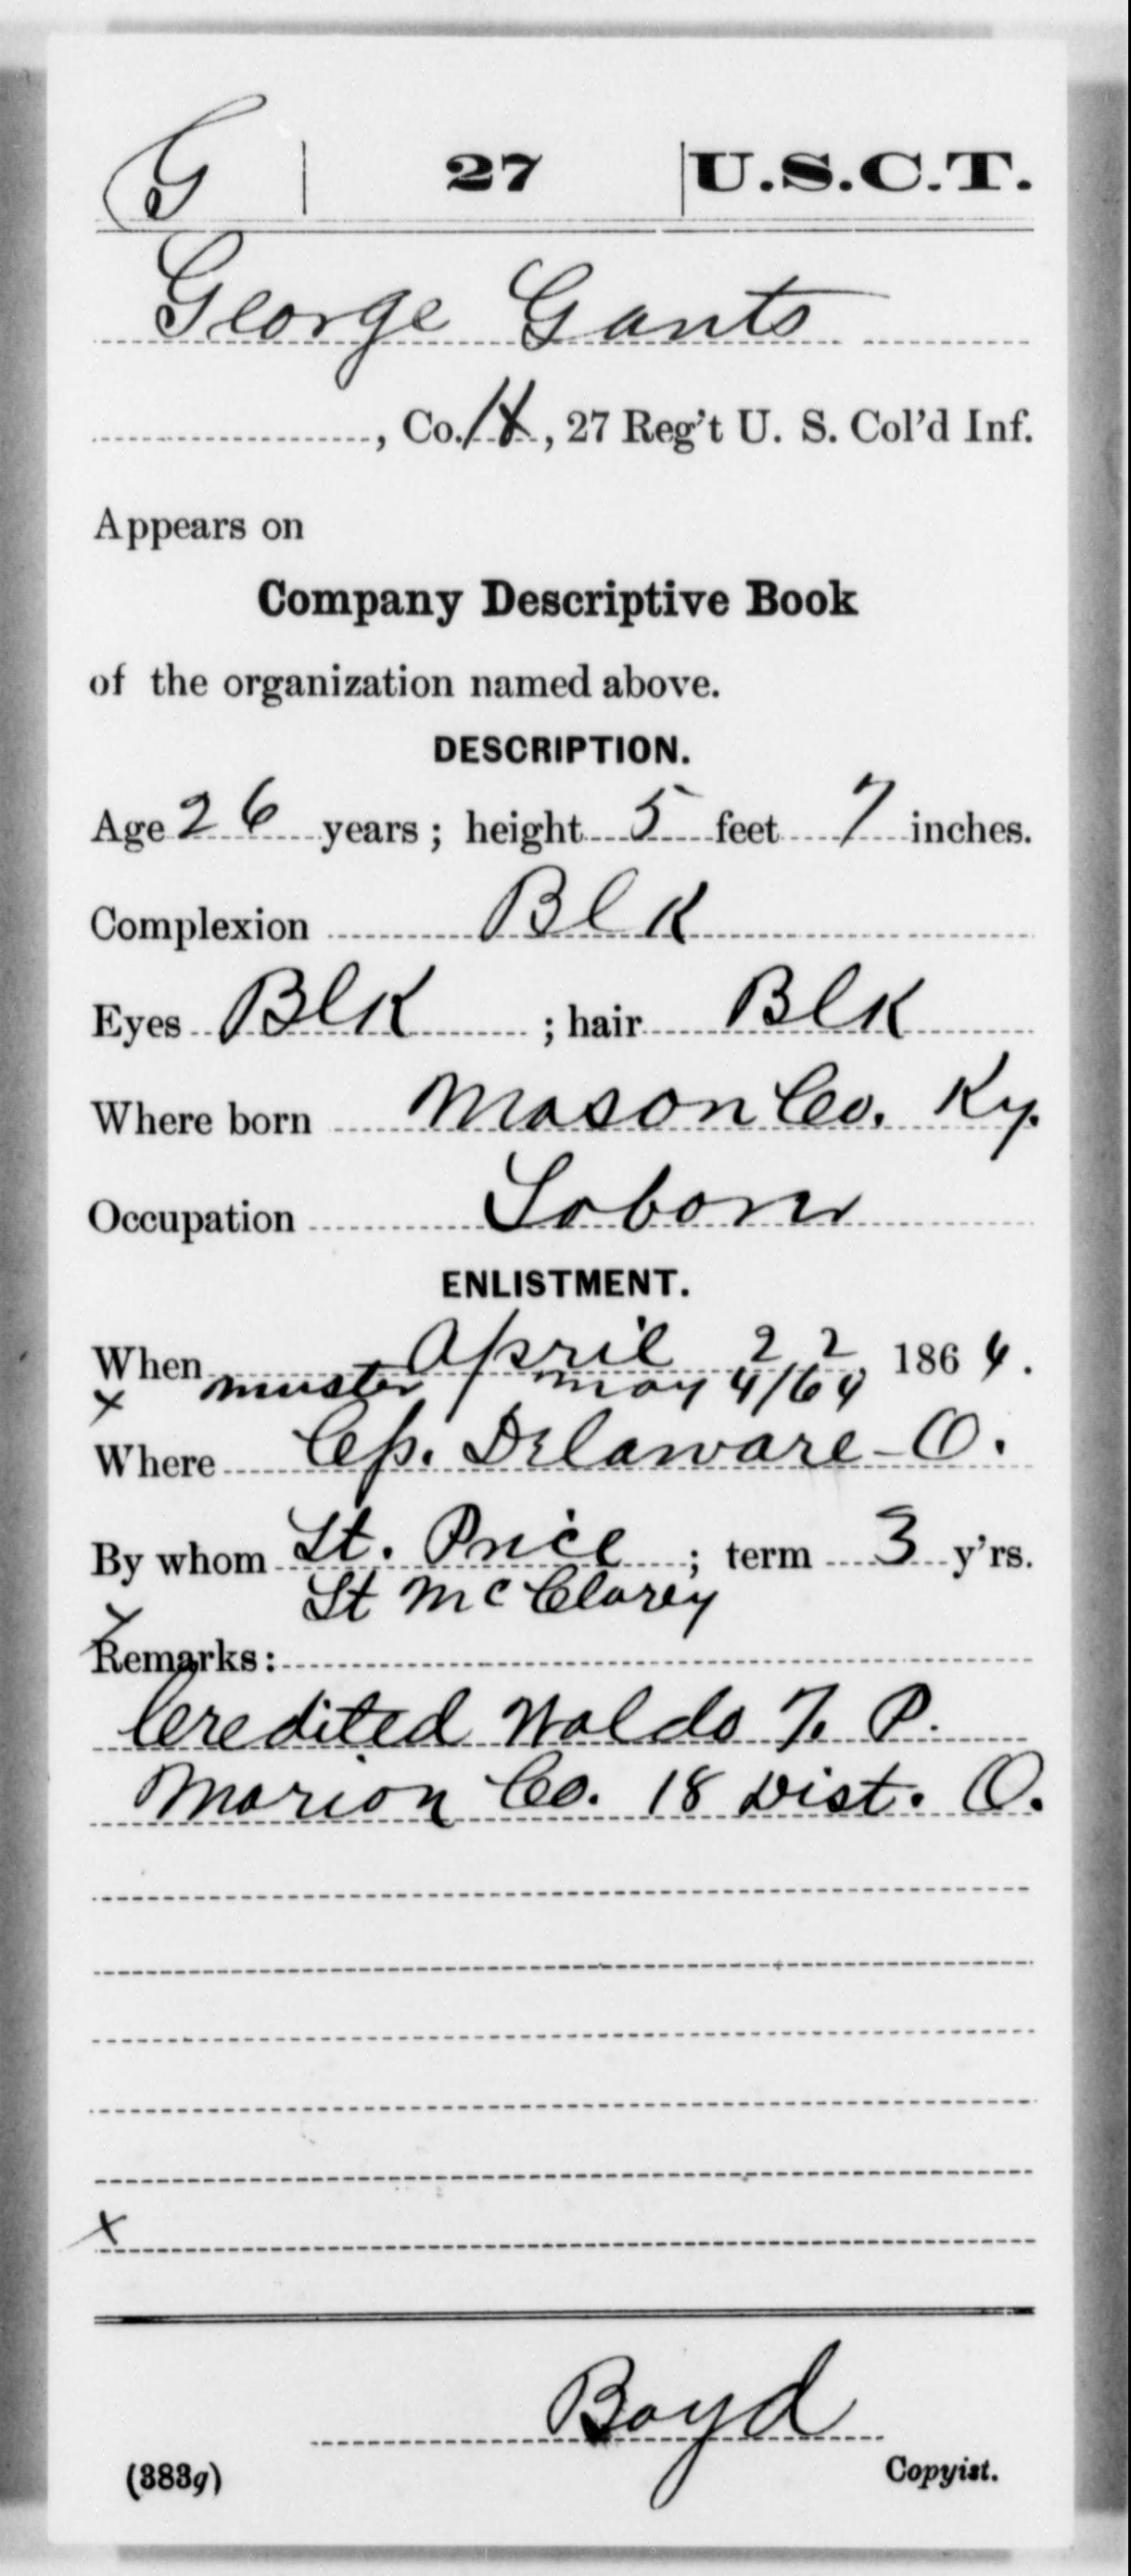 G | 27 | U.S.C.T.
George Gants
, Co. H, 27 Reg't U. S. Col'd Inf.
Appears on
Company Descriptive Book
of the organization named above.
DESCRIPTION.
Age 26 years; height 5 feet 7 inches.
Complexion Blk
Eyes Blk ; hair Blk
Where born Mason Co. Ky.
Occupation Laborer
ENLISTMENT.
When April 22, 1864.
x muster May 4/64
Where Cp. Delaware - O.
By whom Lt. Price ; term 3 y'rs.
Lt McClarey
x
Remarks:
Credited Waldo T. P.
Marion Co. 18 Dist. O.
x
Boyd
(383g) Copyist.